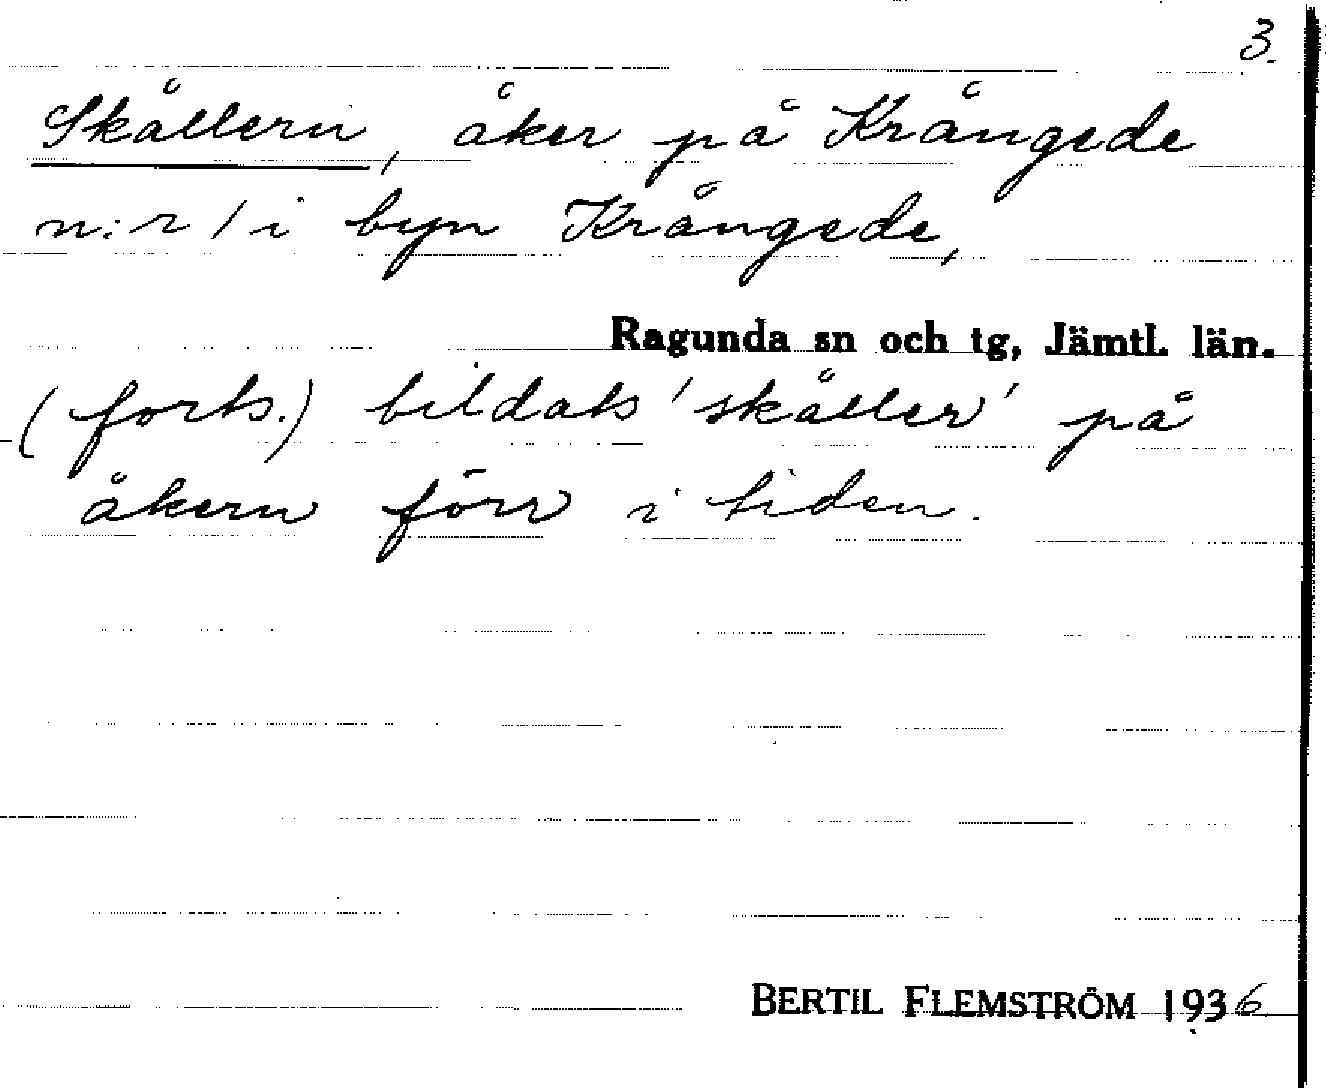 3.
Skållern, åker på Krångede
n:r 1 i byn Krångede,
Ragunda sn och tg, Jämtl. län.
(forts.) bildats 'skåller' på
åkern förr i tiden.
BERTIL FLEMSTRÖM 1936